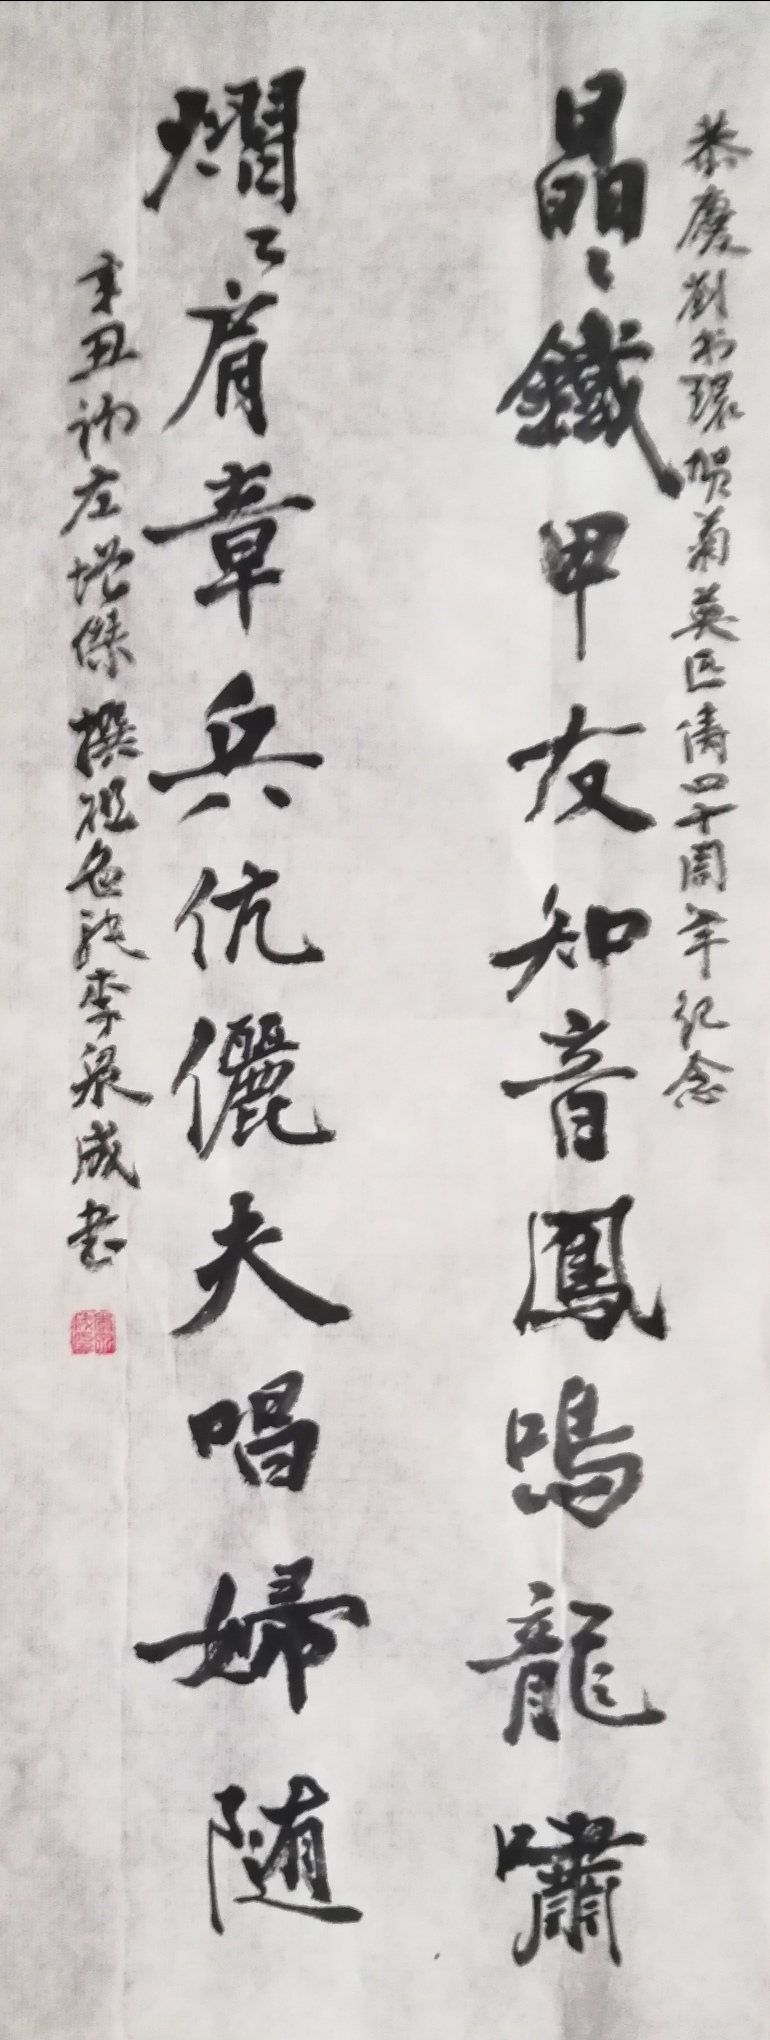 恭慶劉书環贺菊英伉俪四十周年纪念
晶〻鐵甲友知音鳳鳴龍嘯
熠〻肩章兵伉儷夫唱婦随
辛丑初左增傑撰祖色聽李泉成书